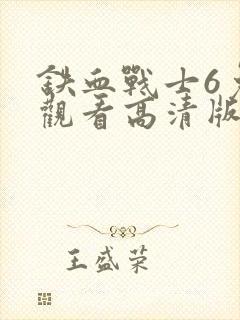 鉄血戰士6免
觀看高清版
王盛荣